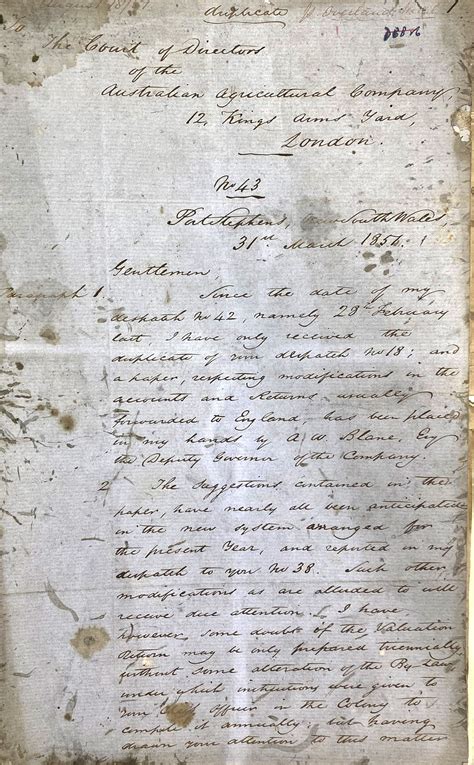 duplicate
To
The Court of Directors
of the
Australian Agricultural Company,
12, Kings Arms Yard,
London.
No 43
Port Stephens, New South Wales,
31st March 1851.
Gentlemen,
Paragraph 1. Since the date of my
despatch No 42, namely 28th February
last, I have only received the
duplicate of your despatch No 18; and
a paper, respecting modifications in the
accounts and Returns usually
forwarded to England, has been placed
in my hands by A. W. Blane, Esq
the Deputy Governor of the Company.
2 The suggestions contained in the
paper, have nearly all been anticipated
in the new system arranged for
the present Year, and reported in my
despatch to you No 38. Such other
modifications as are alluded to will
receive due attention. I have
however, some doubts if the Valuation
Return may be only prepared triennially
without some alteration of the By Laws
under which instructions were given to
your Officer in the Colony to
compile it annually; but having
drawn your attention to this matter